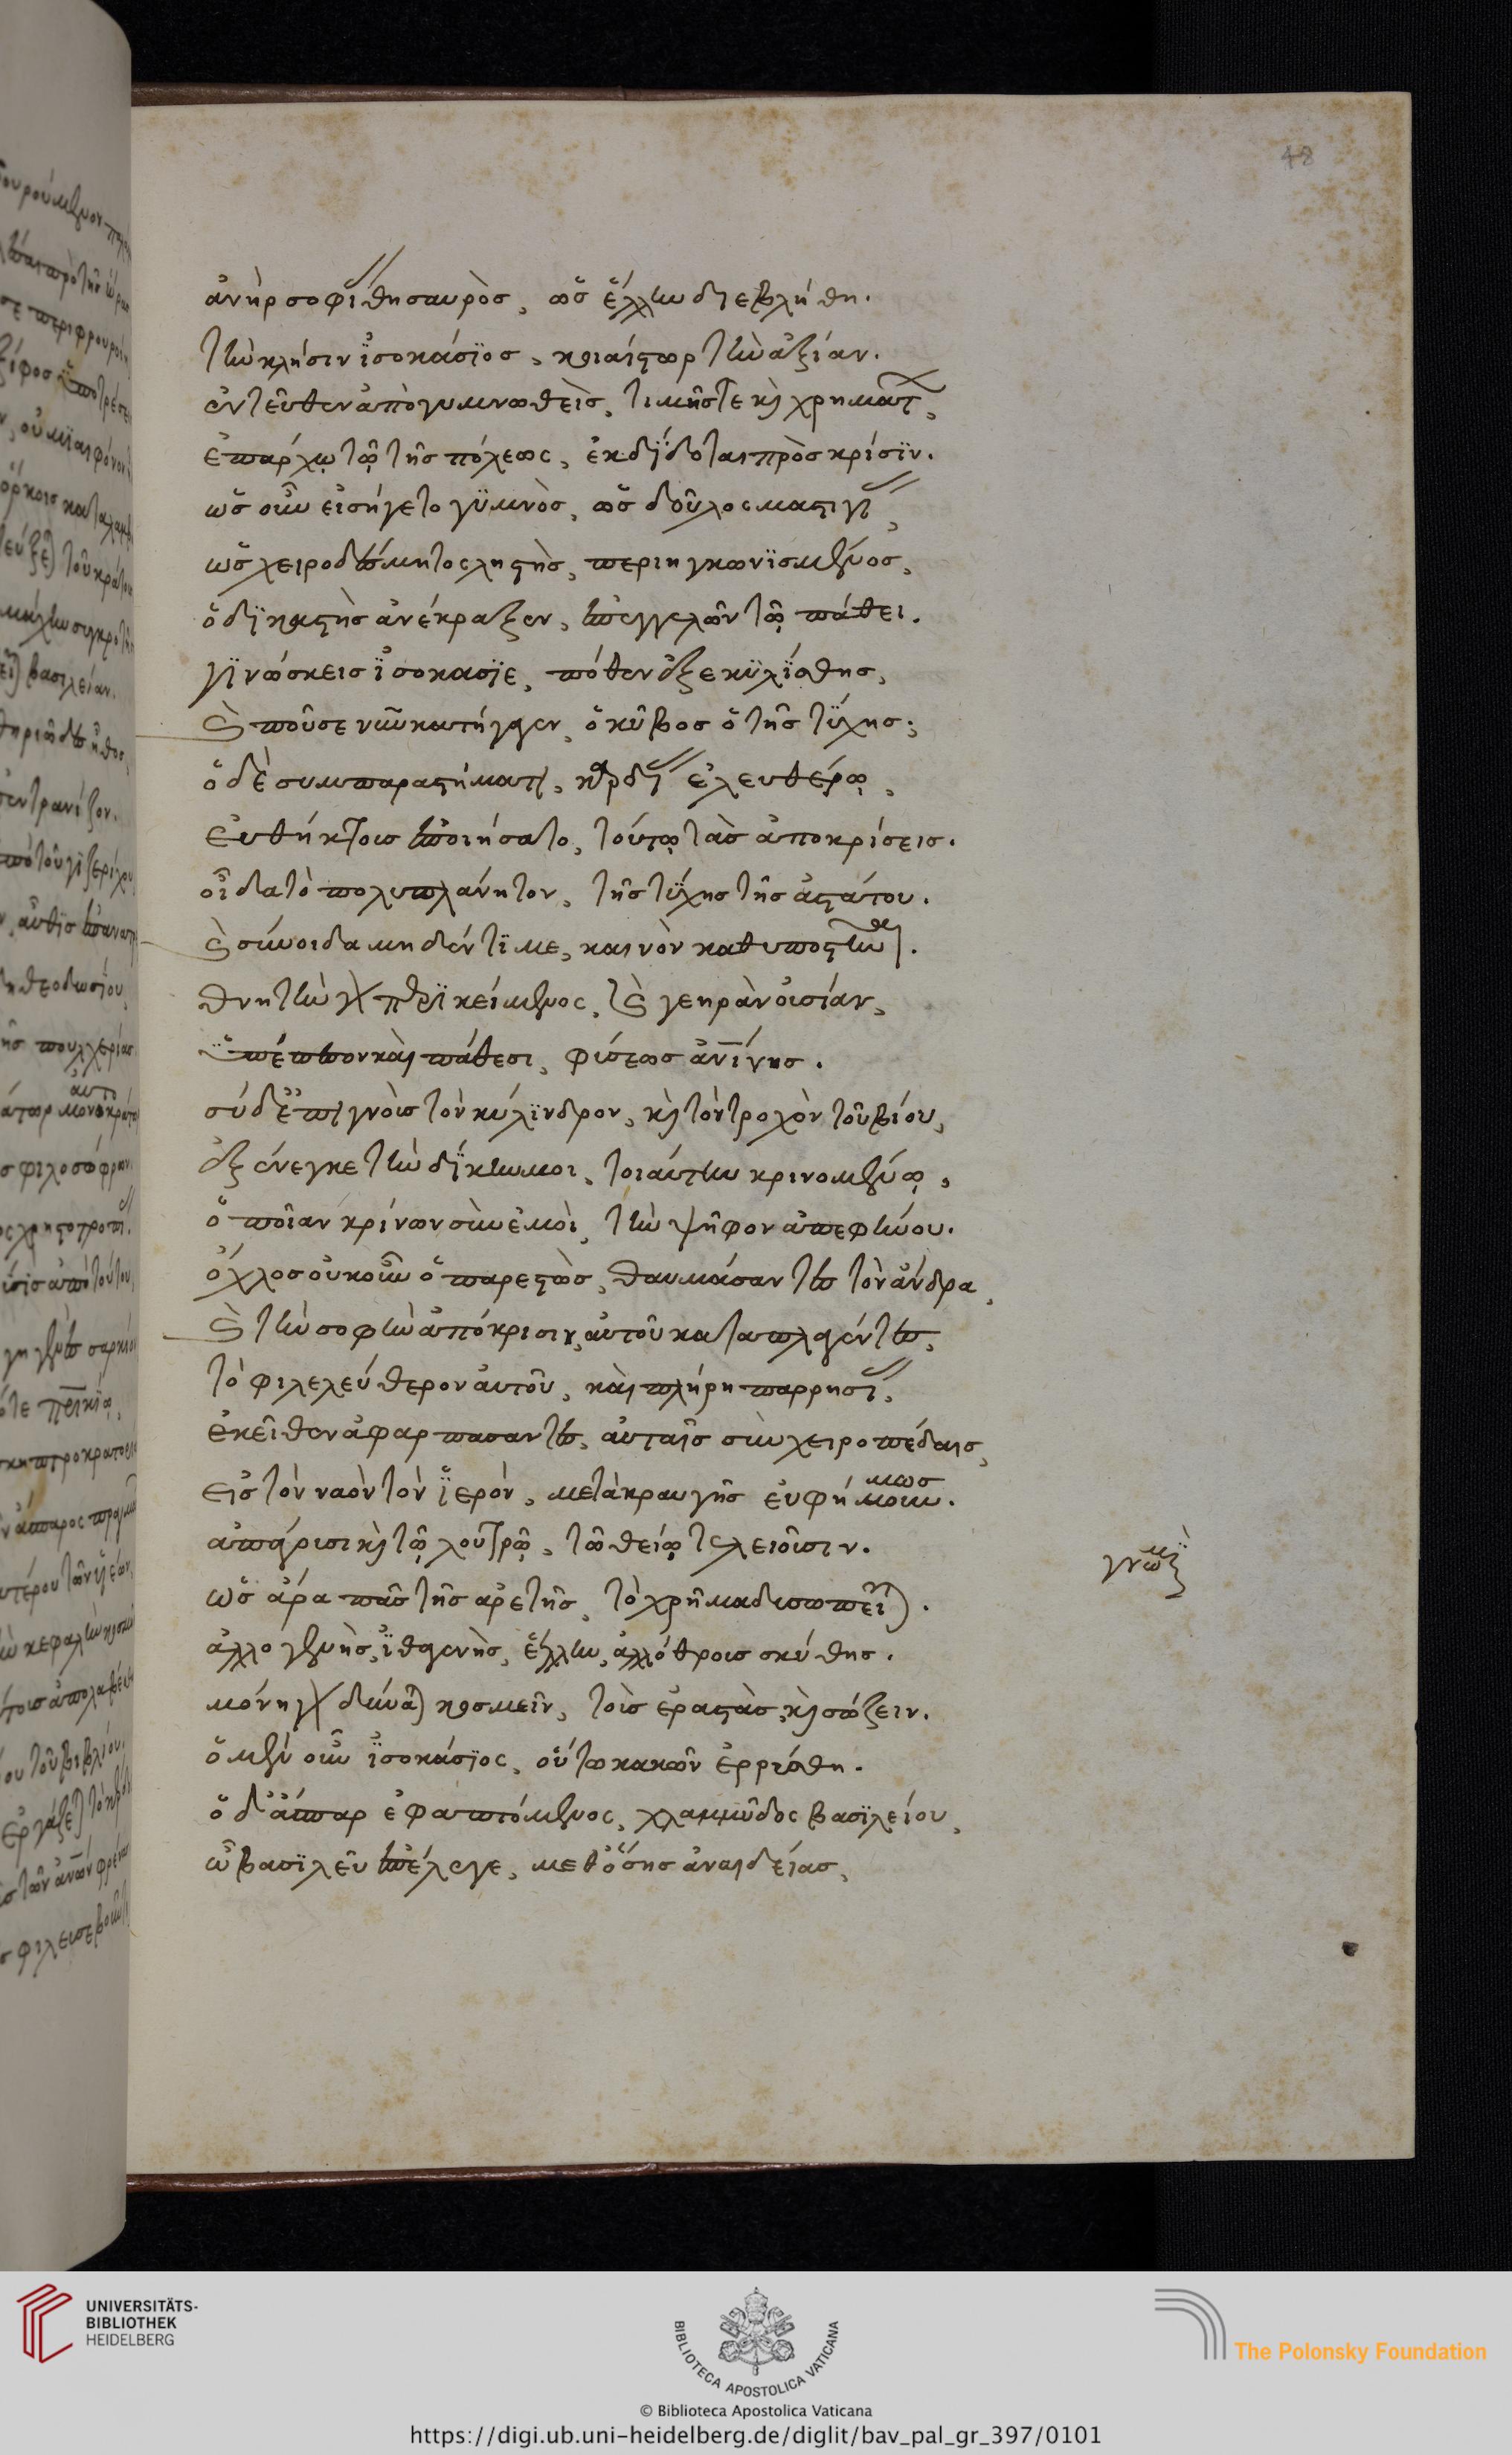 48
ἀνὴρ σοφίας θησαυρὸς, ὡς ἕλλην διεβλήθη.
τὴν κλῆσιν ἰσοκάσϊος, κυαίστωρ τὴν ἀξίαν.
ἐντεῦθεν ἀπογυμνωθεὶς, τιμῆς τε καὶ χρημάτων,
ἐπάρχῳ τῷ τῆς πόλεως, ἐκδίδοται πρὸς κρίσϊν.
ὡς οὖν εἰσήγετο γϋμνὸς, ὡς δοῦλος μαστιγίας,
ὡς χειροδέσμητος ληστὴς, περιηγκωνϊσμένος,
ὁ δϊκαστὴς ἀνέκραξεν, ἐπεγγελῶν τῷ πάθει.
γϊνώσκεις ἰσοκάσϊε, πόθεν ἐξεκϋλίσθης,
καὶ ποῦ σε νῦν κατήγαγεν, ὁ κύβος ὁ τῆς τύχης;
ὁ δὲ συμπαραστήματι, καρδίας ἐλευθέρῳ,
εὐθήκτους ἐποιήσατο, τούτῳ τὰς ἀποκρίσεις.
οἶδα τὸ πολυπλάνητον, τῆς τύχης τῆς ἀστάτου.
καὶ σύνοιδα μηδέν τί με, καινὸν καθυποστῆναι.
θνητὴν γὰρ περϊκείμενος, καὶ γεηρὰν οὐσίαν,
ὑπέπεσον καὶ πάθεσι, φύσεως ἀνθρωπίνης.
σὺ δ' ἐπιγνοὺς τὸν κύλϊνδρον, καὶ τὸν τροχὸν τοῦ βίου,
ἐξένεγκε τὴν δίκην μοι, τοιαύτην κρινομένῳ,
ὁποίαν κρίνων σὺν ἐμοὶ, τὴν ψῆφον ἀπεφήνου.
ὄχλος οὐκοῦν ὁ παρεστὼς, θαυμάσαντες τὸν ἄνδρα,
καὶ τὴν σοφὴν ἀπόκρισιν, αὐτοῦ καταπλαγέντες,
τὸ φιλελεύθερον αὐτοῦ, καὶ πλήρη παρρησίας,
ἐκεῖθεν ἀφαρπάσαντες, αὐταῖς σὺν χειροπέδαις,
εἰς τὸν ναὸν τὸν ἱερόν, μετὰ κραυγῆς εὐφήμου μως.
ἀπαίρουσι καὶ τῷ λουτρῷ, τῷ θείῳ τελειοῦσιν.
γνώμη
ὡς ἆρα πᾶς τῆς ἀρετῆς, τὸ χρῆμα δυσωπεῖται.
ἀλλογενὴς, ἰθαγενὴς, ἕλλην, ἀλλόθρους σκύθης.
μόνη γὰρ δύναται κοσμεῖν, τοὺς ἐραστὰς, καὶ σώζειν.
ὁ μὲν οὖν ἰσοκάσϊος, οὕτω κακῶν ἐρρύσθη.
ὁ δ' ἄσπαρ ἐφαπτόμενος, χλαμμύδος βασϊλείου,
ὦ βασϊλεῦ ἐπέλεγε, μεθ' ὅσης ἀναιδείας,
UNIVERSITÄTS-
BIBLIOTHEK
HEIDELBERG
BIBLIOTECA APOSTOLICA VATICANA
The Polonsky Foundation
© Biblioteca Apostolica Vaticana
https://digi.ub.uni-heidelberg.de/diglit/bav_pal_gr_397/0101